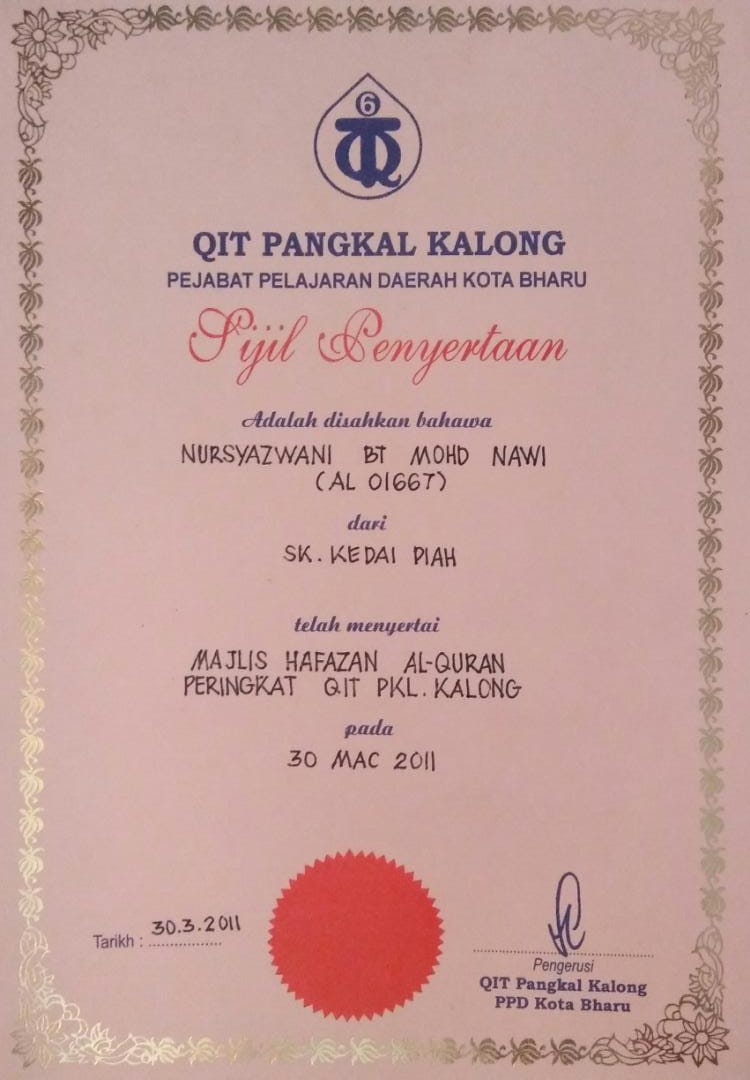 6
QIT
QIT PANGKAL KALONG
PEJABAT PELAJARAN DAERAH KOTA BHARU
Sijil Penyertaan
Adalah disahkan bahawa
NURSYAZWANI BT MOHD NAWI
(AL 01667)
dari
SK. KEDAI PIAH
telah menyertai
MAJLIS HAFAZAN AL-QURAN
PERINGKAT QIT PKL. KALONG
pada
30 MAC 2011
Tarikh : 30.3.2011
Pengerusi
QIT Pangkal Kalong
PPD Kota Bharu